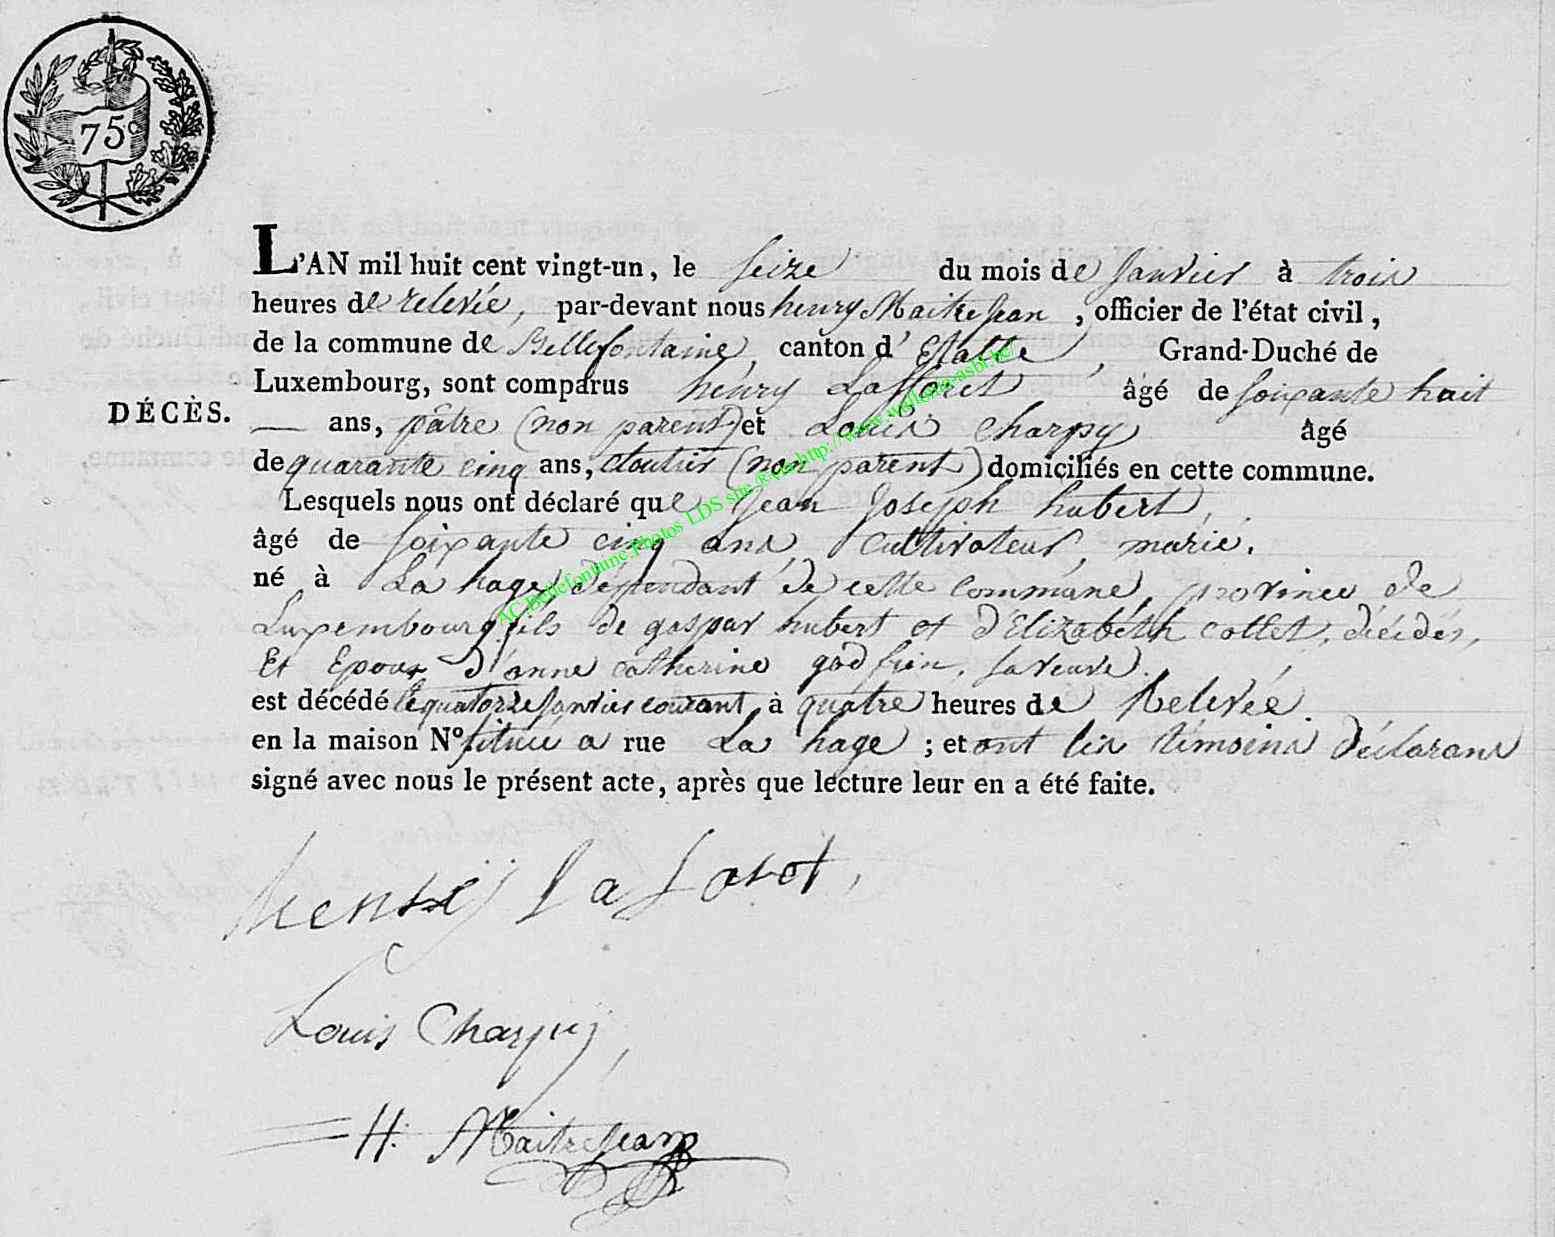 75c
L'AN mil huit cent vingt-un, le seize du mois de janvier à trois
heures de relevée, par-devant nous henry Maitrejean, officier de l'état civil,
de la commune de Bellefontaine, canton d'Etalle, Grand-Duché de
Luxembourg, sont comparus henry Lafforet âgé de soixante huit
DÉCÈS.
— ans, pâtre (non parent) et Louis Charpy âgé
de quarante cinq ans, cloutier (non parent) domiciliés en cette commune.
Lesquels nous ont déclaré que Jean Joseph hubert,
âgé de soixante cinq ans, cultivateur, marié.
né à La hage, dépendant de cette commune, province de
Luxembourg, fils de gaspar hubert et d'Elizabéth collet, décédés,
Et Epoux d'anne catherine godfrin, sa veuve.
est décédé le quatorze janvier courant, à quatre heures de Relevée
en la maison N° située a rue La hage ; et ont les témoins déclarans
signé avec nous le présent acte, après que lecture leur en a été faite.
henry laforet,
Louis Charpy,
H. Maitrejean
AC Bellefontaine Photos LDS